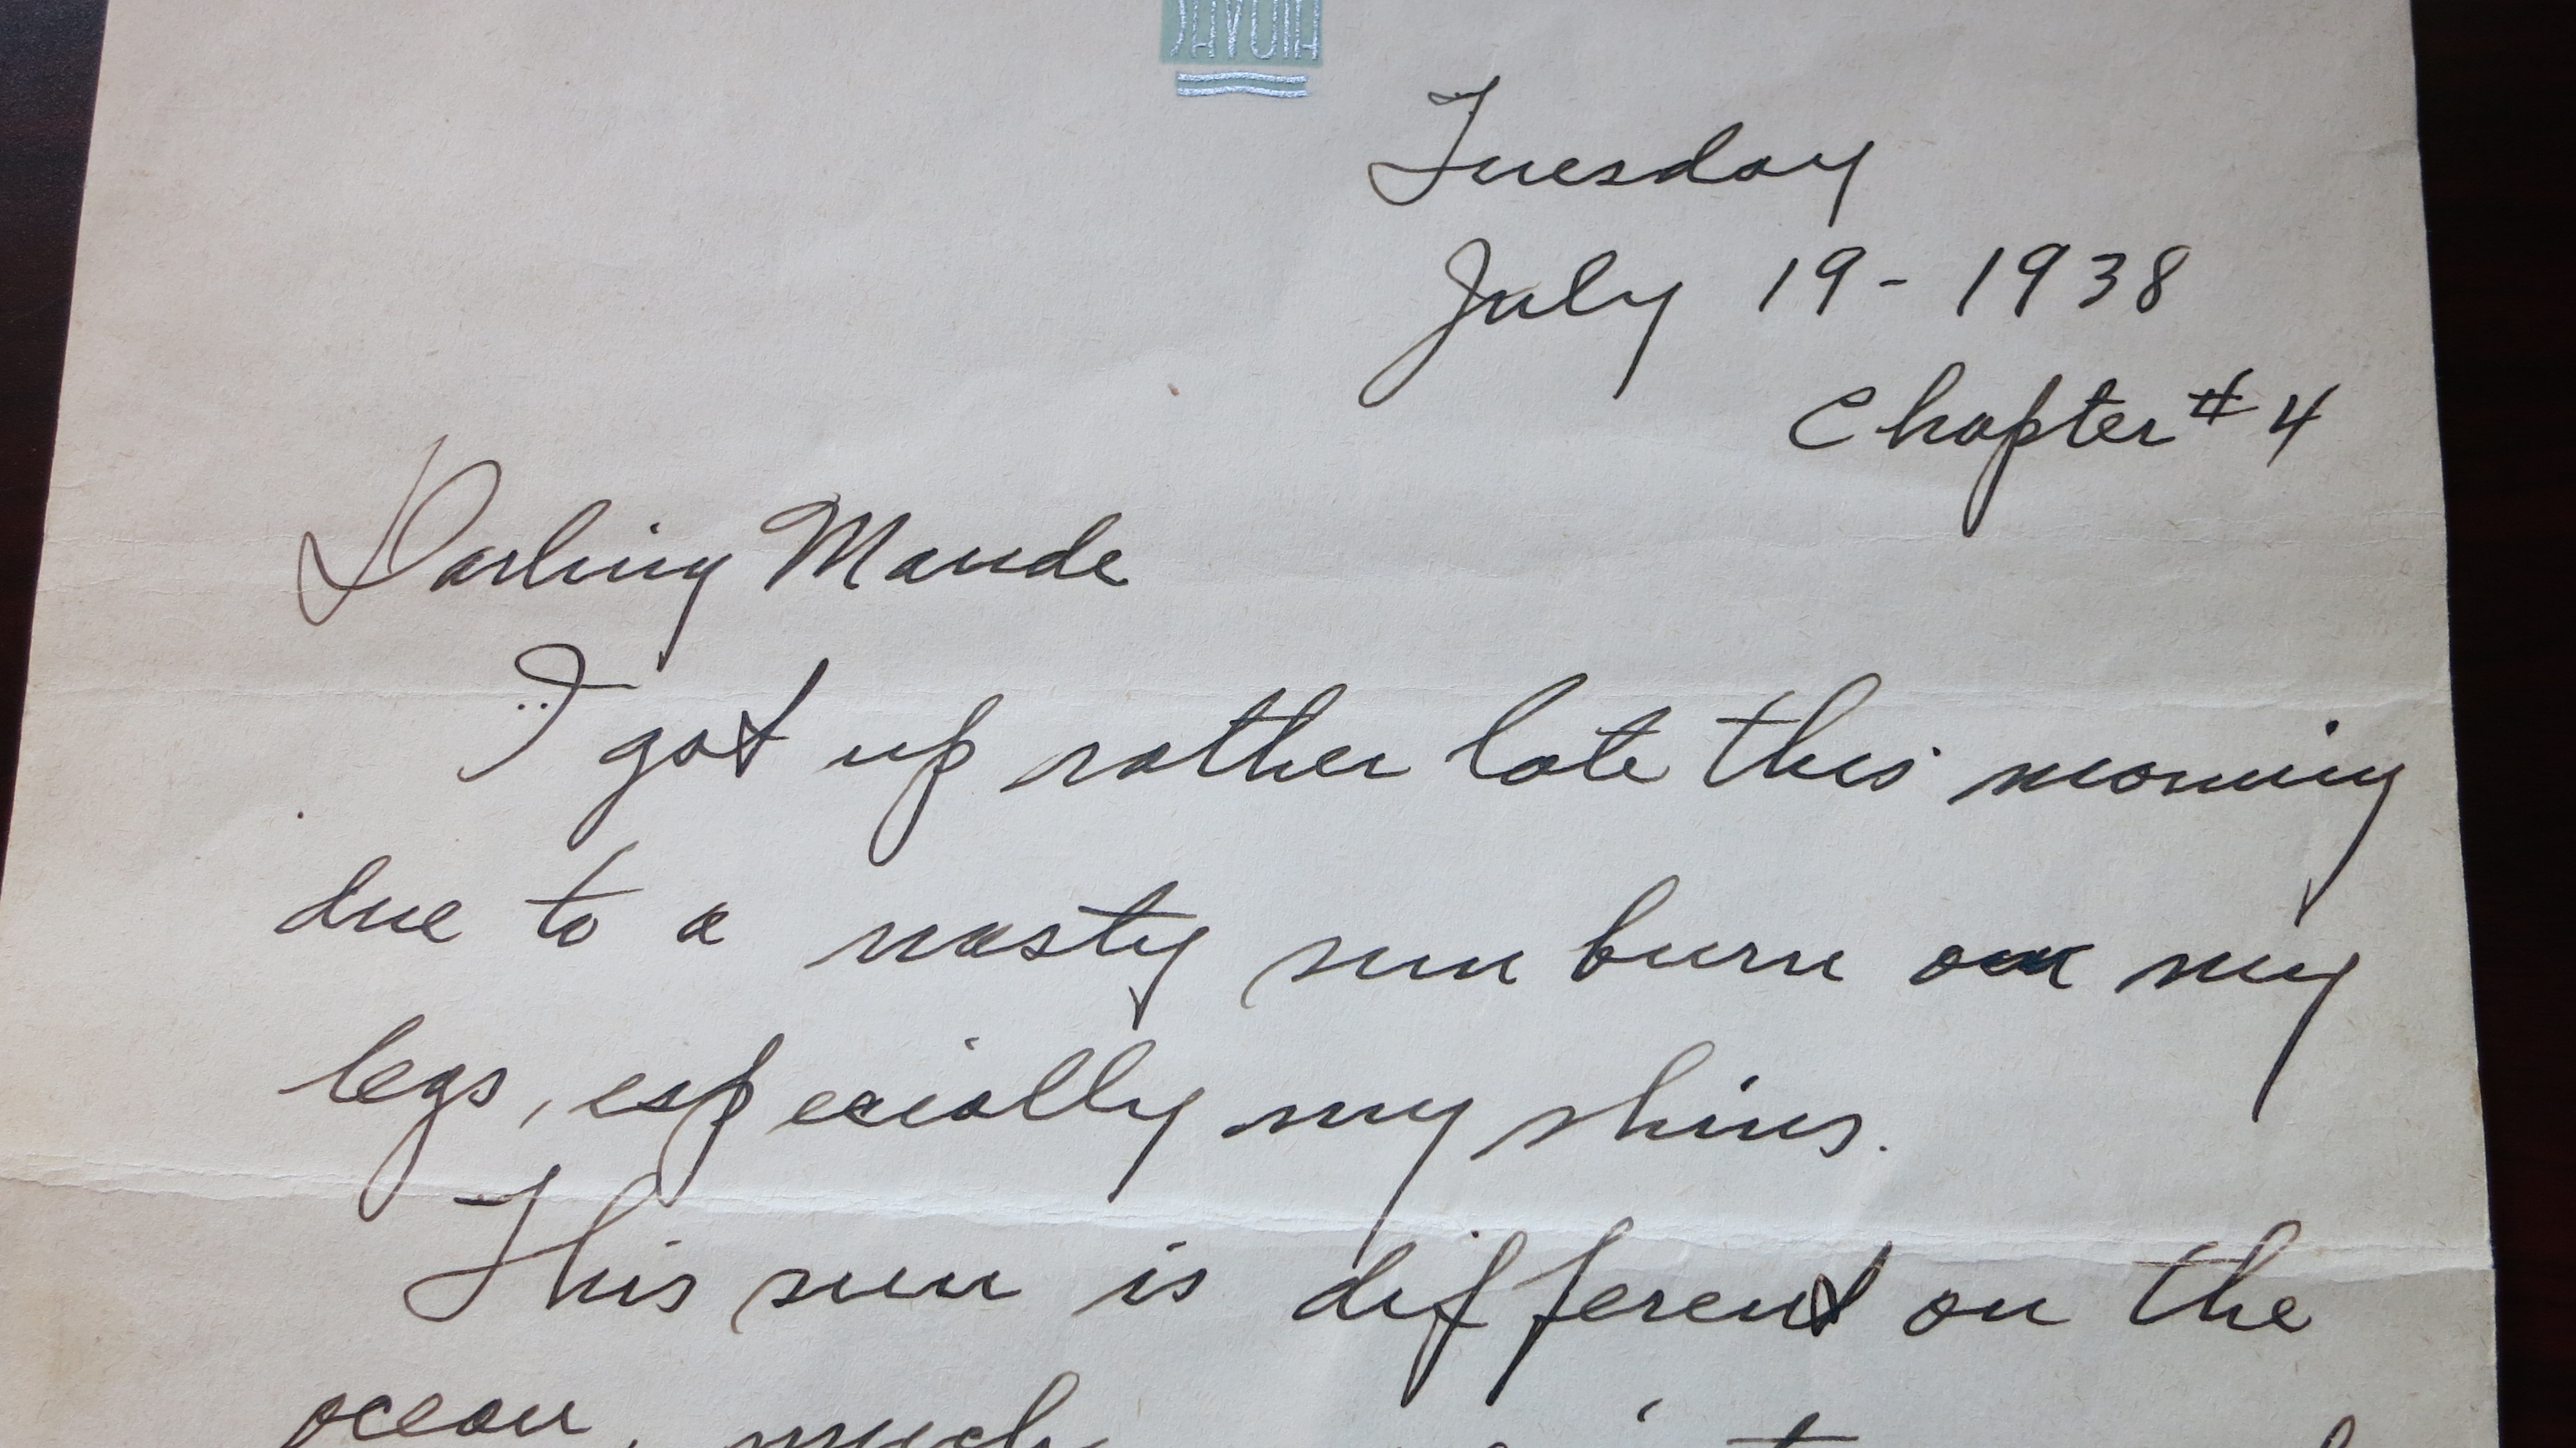 SAVOIA
Tuesday
July 19 - 1938
Chapter #4
Darling Maude
I got up rather late this morning
due to a nasty sun burn on my
legs, especially my shins.
This sun is different on the
ocean, much